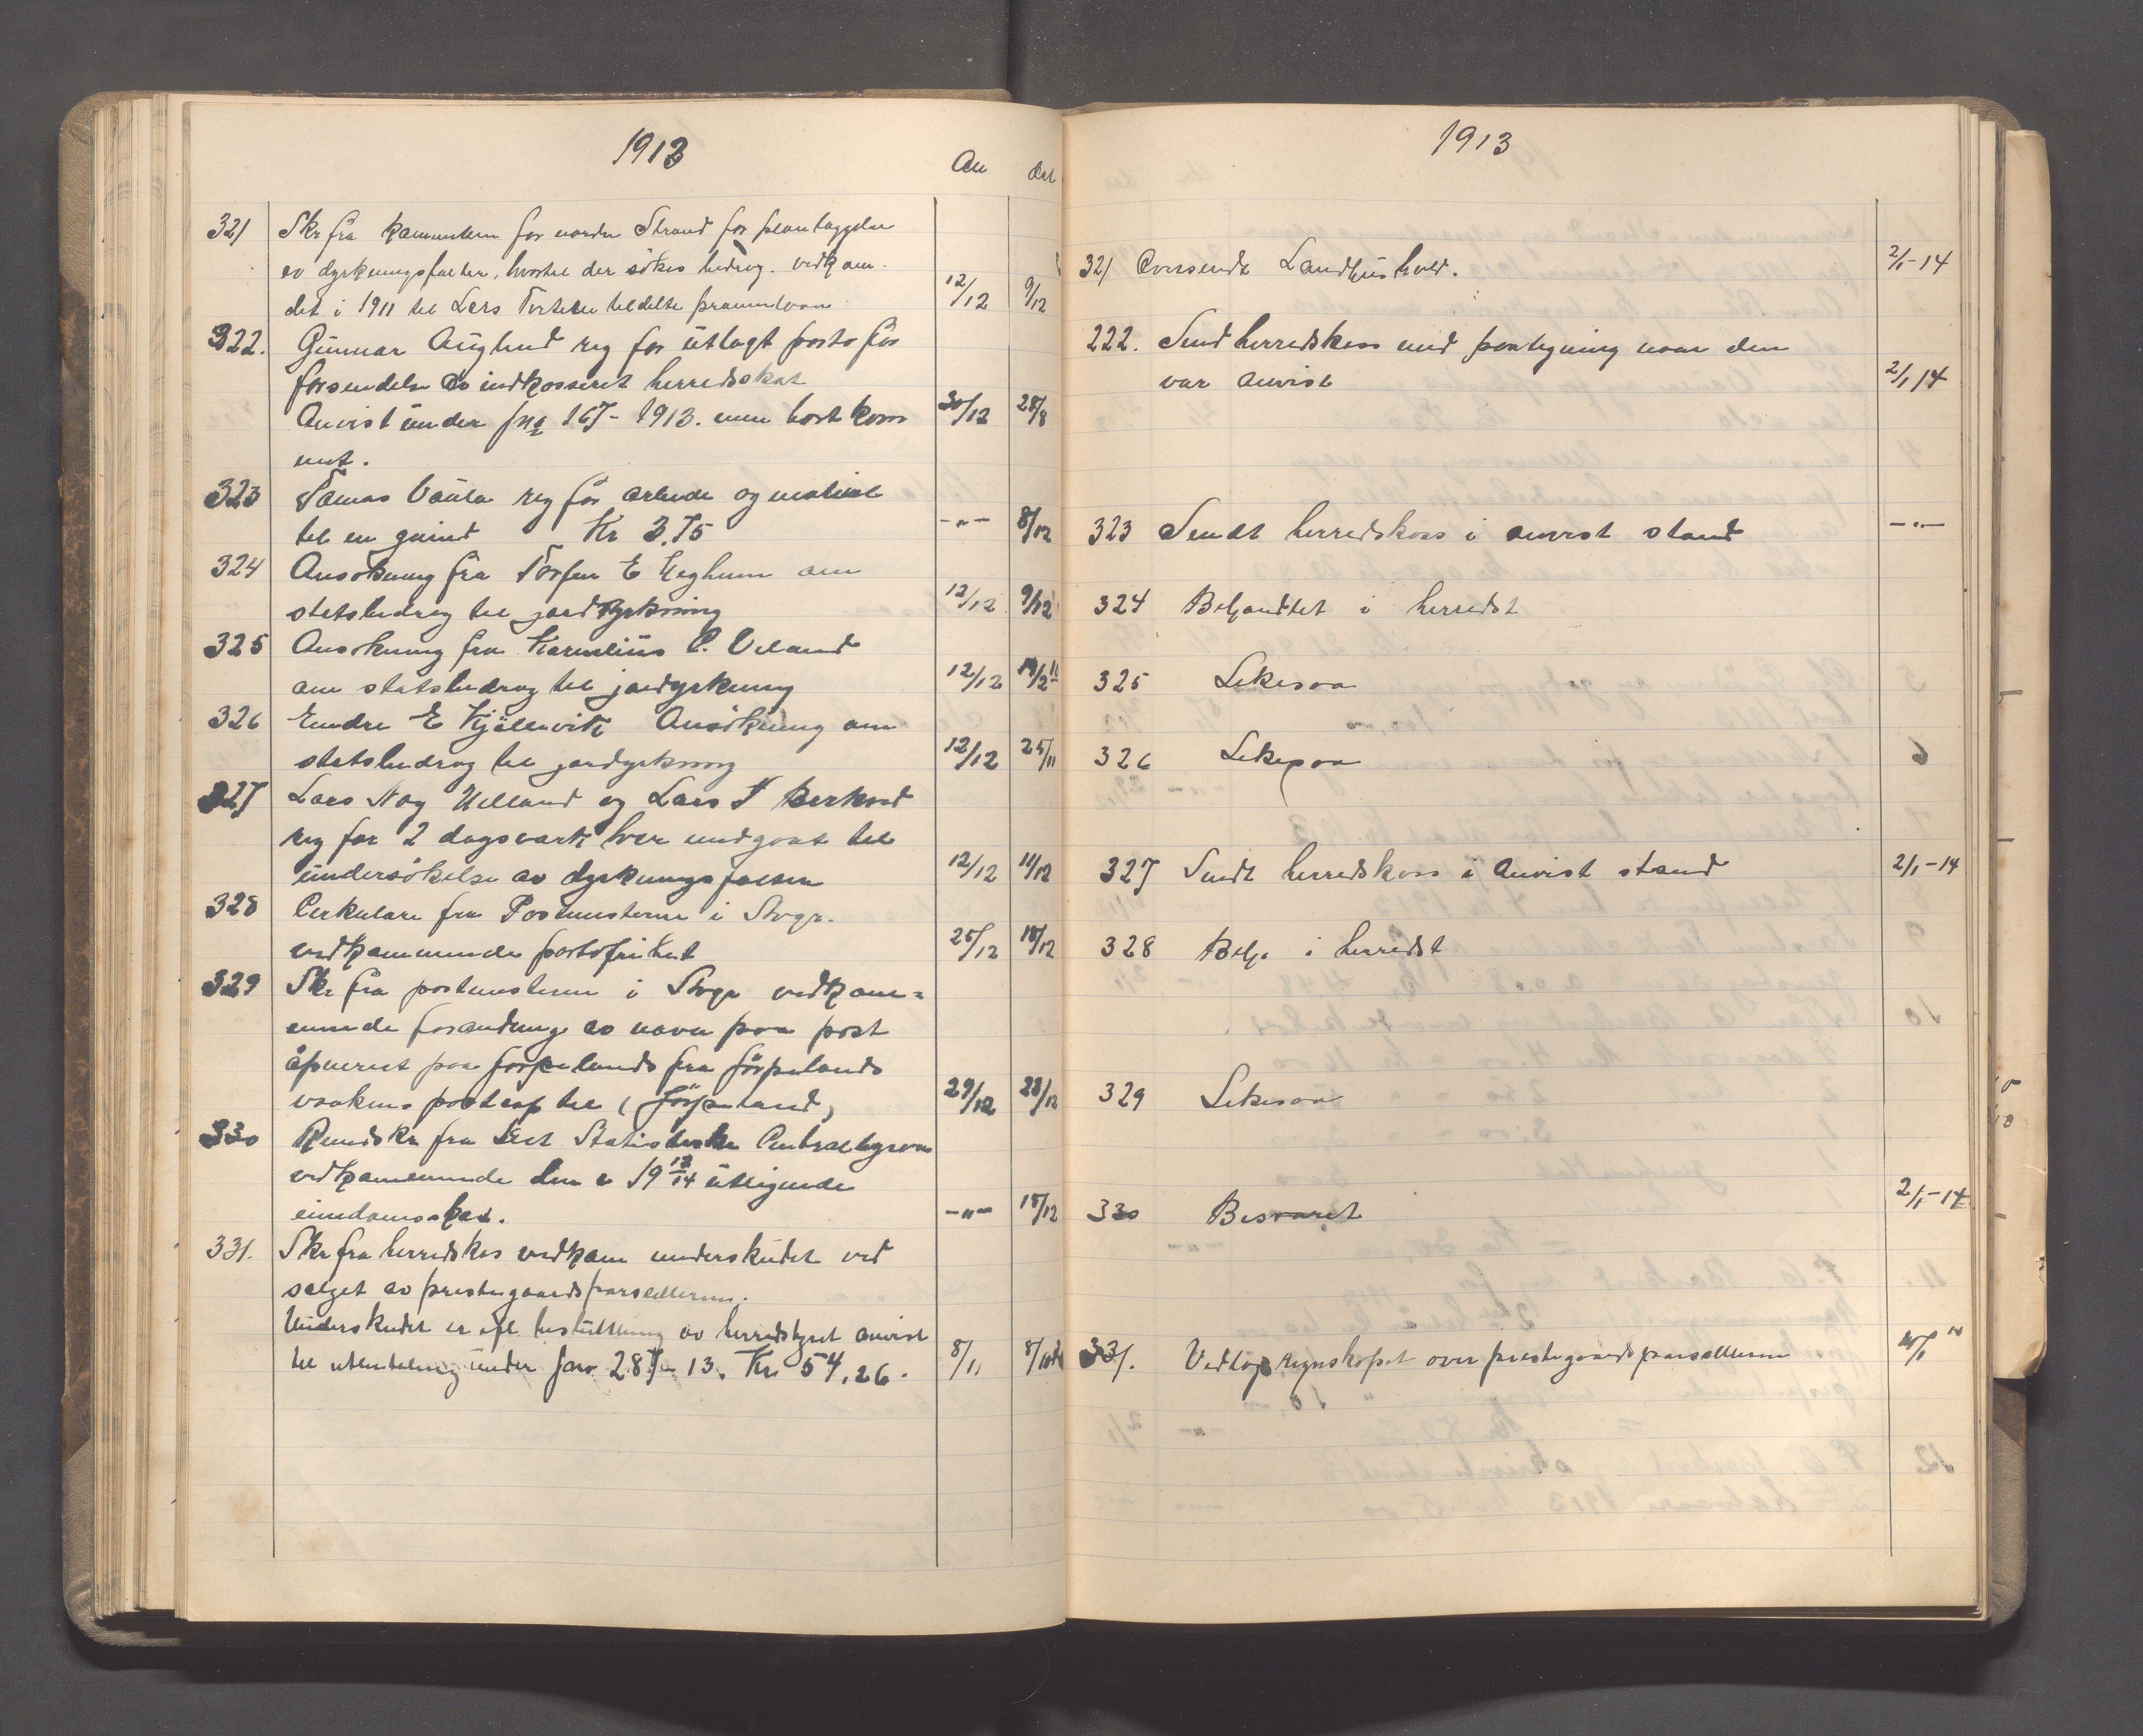 1913
An dat
321 Skr fra for nordre Strand for planlæggelse
av dyrkningsfælter, hvortil der sökes bidrag. vedkom
det i 1911 til Lars tildelte 12/12 9/12
322. Gunnar Auglend reg for utlagt porto for
forsendelse av indkasseret herredsskat
Anvist under jno 167 - 1913. men bortkom 30/12 28/8
met.
323 Tamas Vaula reg for arbeide og material
til en grind Kr 3.75 -"- 8/12
324 Ansökning fra E Heghum om
statsbidrag til jorddyrkning 12/12 9/12
325 Ansökning fra Kornelius P. Veland
om statsbidrag til jordyrkning 12/12
326 Endre E Kjöllevik Ansökning om
statsbidrag til jordyrkning 12/12 25/11
327 Lars Nag Helland og Lars T Barkved
reg for 2 dagsverk hver medgaat til
undersökelse av dyrkningsfælter 12/12 11/12
328 Cirkulære fra Postmesteren i Stvgr.
vedkommende portofrihet 25/12 18/12
329 Skr fra postmesteren i Stvgr vedkom=
mende forandring av navn paa post
åpneriet paa Jörpeland fra Jörpelands
vaakens postexp til (Jörpeland) 29/12 23/12
330 Rundskr fra Det Statistiske Centralbyraa
vedkommende den i 19 13/14 utlignede
eiendomsskat. -"- 15/12
331. Skr fra herredskas vedkom underskudet ved
salget av prestegaardsparsellerne.
Underskudet er efl beslutning av herredstyret anvist
til utbetaling under jno 287 - 13. Kr 54,26. 8/11
1913
321 Oversendt Landhushold. 2/1-14
222. Sendt herredskass med paategning naar den
var anvist 2/1 14
323 Sendt herredskass i anvist stand -"-
324 Behandlet i herredst
325 Likesaa
326 Likesaa
327 Sendt herredskass i anvist stand 2/1-14
328 Beh. i herredst
329 Likesaa
330 Besvaret 2/1-14
331. Vedlagt regnskapet over prestegaardsparsellerne